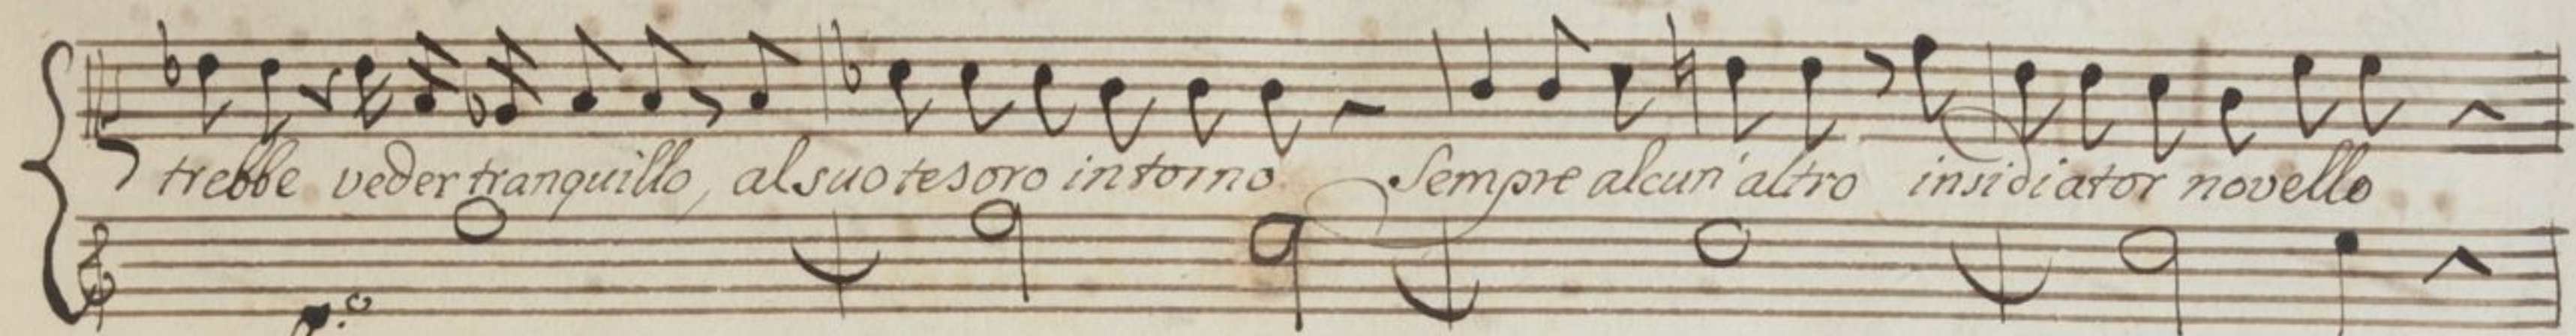 trebbe veder tranquillo, al suo tesoro intorno. Sempre alcun' altro insidiator novello